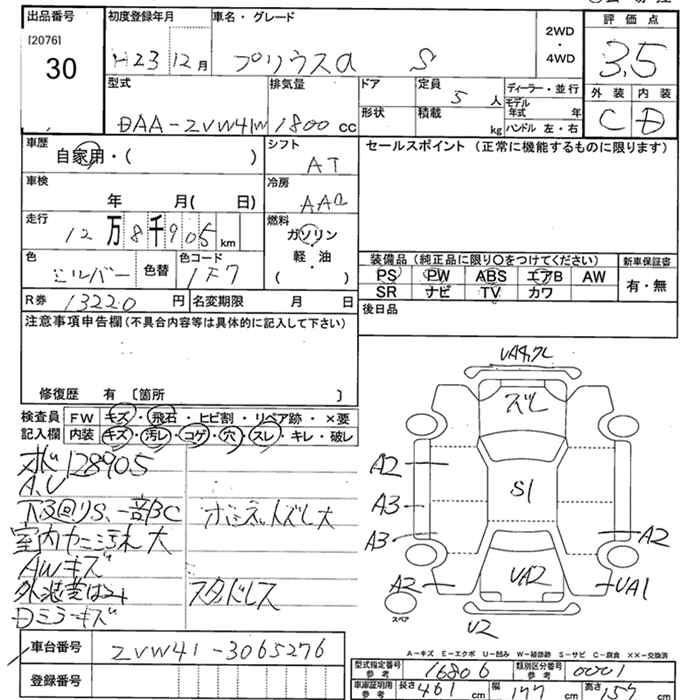 出品番号 初度登録年月 車名・グレード 評価点
[2076]
30 H23 12月 プリウスα S 2WD・4WD 3.5
型式 排気量 ドア 定員 5人 ディーラー・並行 外装 内装
形状 積載 kg モデル年式 年 ハンドル 左・右
DAA-ZVW41W 1800cc C D
車歴 自家用・( ) シフト AT セールスポイント(正常に機能するものに限ります)
車検 年 月( 日) 冷房 AAC
走行 12万8千905km 燃料 ガソリン 軽・油 ( )
色 シルバー 色替 色コード 1F7
装備品(純正品に限り○をつけてください) 新車保証書
PS PW ABS エアB AW 有・無
SR ナビ TV カワ
R券 13220円 名変期限 月 日 後日品
注意事項申告欄(不具合内容等は具体的に記入して下さい)
修復歴 有 〔箇所 〕
検査員 FW キズ・飛石・ヒビ割・リペア跡・×要
記入欄 内装 キズ・汚レ・コゲ・穴・スレ・キレ・破レ
128905
A.U
下回りS、一部BC ボンネットズレ大
室内 汚れ大
AWキズ
スタッドレス
Dミラーキズ
ズレ
A2 S1
A3
A3 A2
A2 UA2 UA1
スペア U2
A-キズ E-エクボ U-凹み W-補修跡 S-サビ C-腐食 XX-交換済
車台番号 ZVW41-3065276
登録番号
型式指定番号 参考 16806 類別区分番号 参考 0001
車庫証明用 参考 長さ 461cm 幅 177cm 高さ 157cm